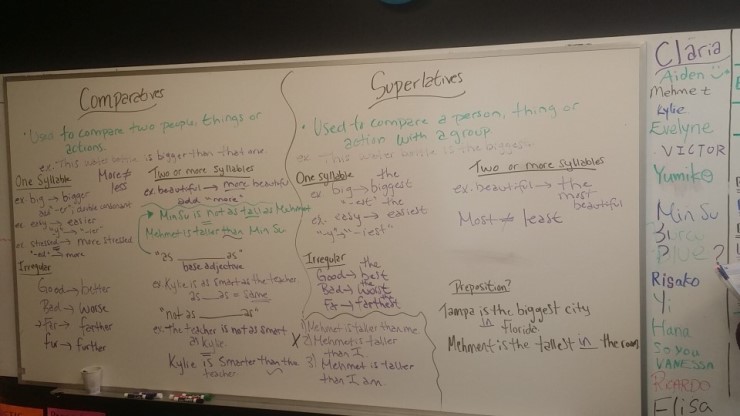 Comparatives
• Used to compare two people, things or
actions.
ex. This water bottle is bigger than that one
One Syllable
ex. big → bigger
add "-er", double consonant
ex. easy → easier
"-y" → "-ier"
ex. stressed → more stressed
"-ed" → more
Irregular
Good → better
Bad → worse
Far → farther
far → further
More ≠
less
Two or more syllables
ex. beautiful → more beautiful
add "more"
Min Su is not as tall as Mehmet
Mehmet is taller than Min Su
"as ____ as"
base adjective
ex. Kylie is as smart as the teacher
as __ as = same
"not as ____ as"
ex. The teacher is not as smart
as Kylie
Kylie is smarter than the
teacher
Superlatives
• Used to compare a person, thing or
action with a group
ex. This water bottle is the biggest.
One syllable
the
ex. big → biggest
"-est" the
ex. easy → easiest
"-y" → "-iest"
Irregular
the
Good → best
the
Bad → worst
the
Far → farthest
1) Mehmet is taller than me.
X 2) Mehmet is taller
than I.
3) Mehmet is taller
than I am.
Two or more Syllables
ex. beautiful → the
most
beautiful
Most ≠ least
Preposition?
Tampa is the biggest city
in Florida.
Mehment is the tallest in the room
Claria
Aiden
Mehmet
Kylie
Evelyne
VICTOR
Yumiko
Min Su
Burcu
Blue?
Risako
Yi
Hana
So You
VANESSA
RICARDO
Elisa